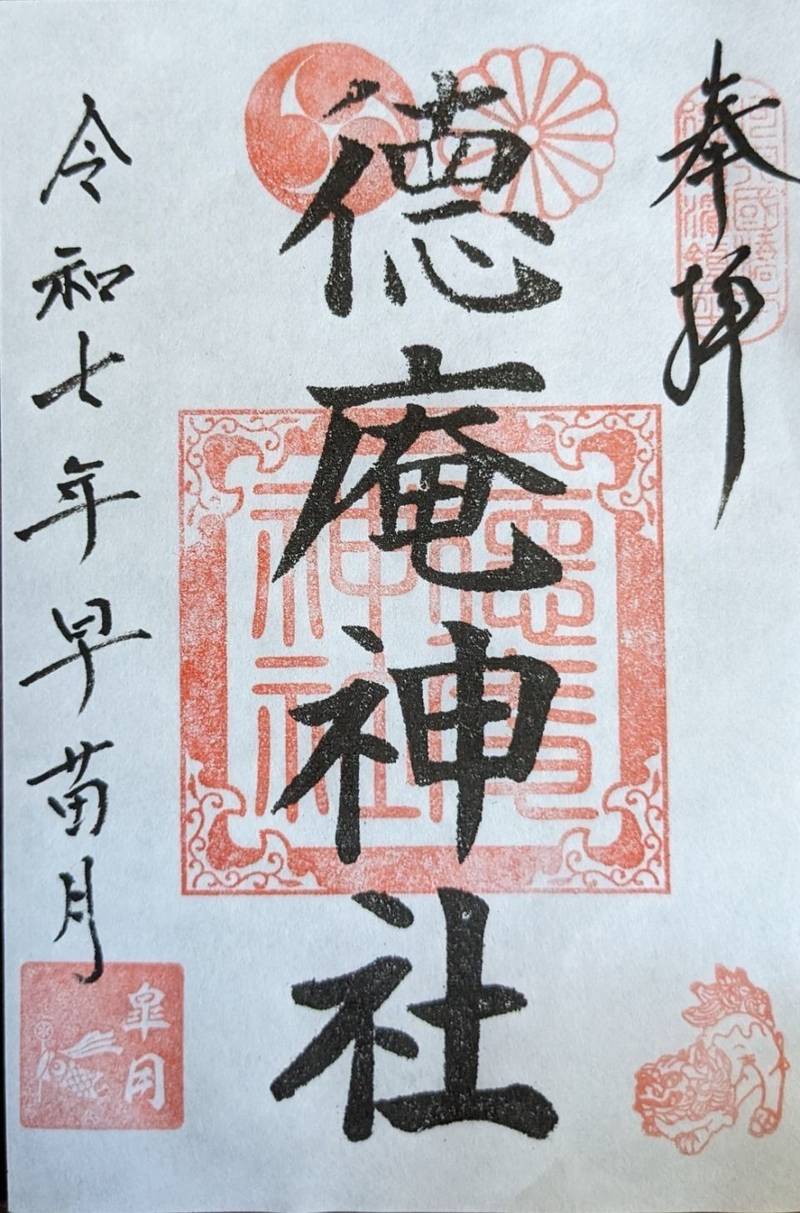 奉拝
徳庵神社
徳庵
神社
令和七年早苗月
皐月